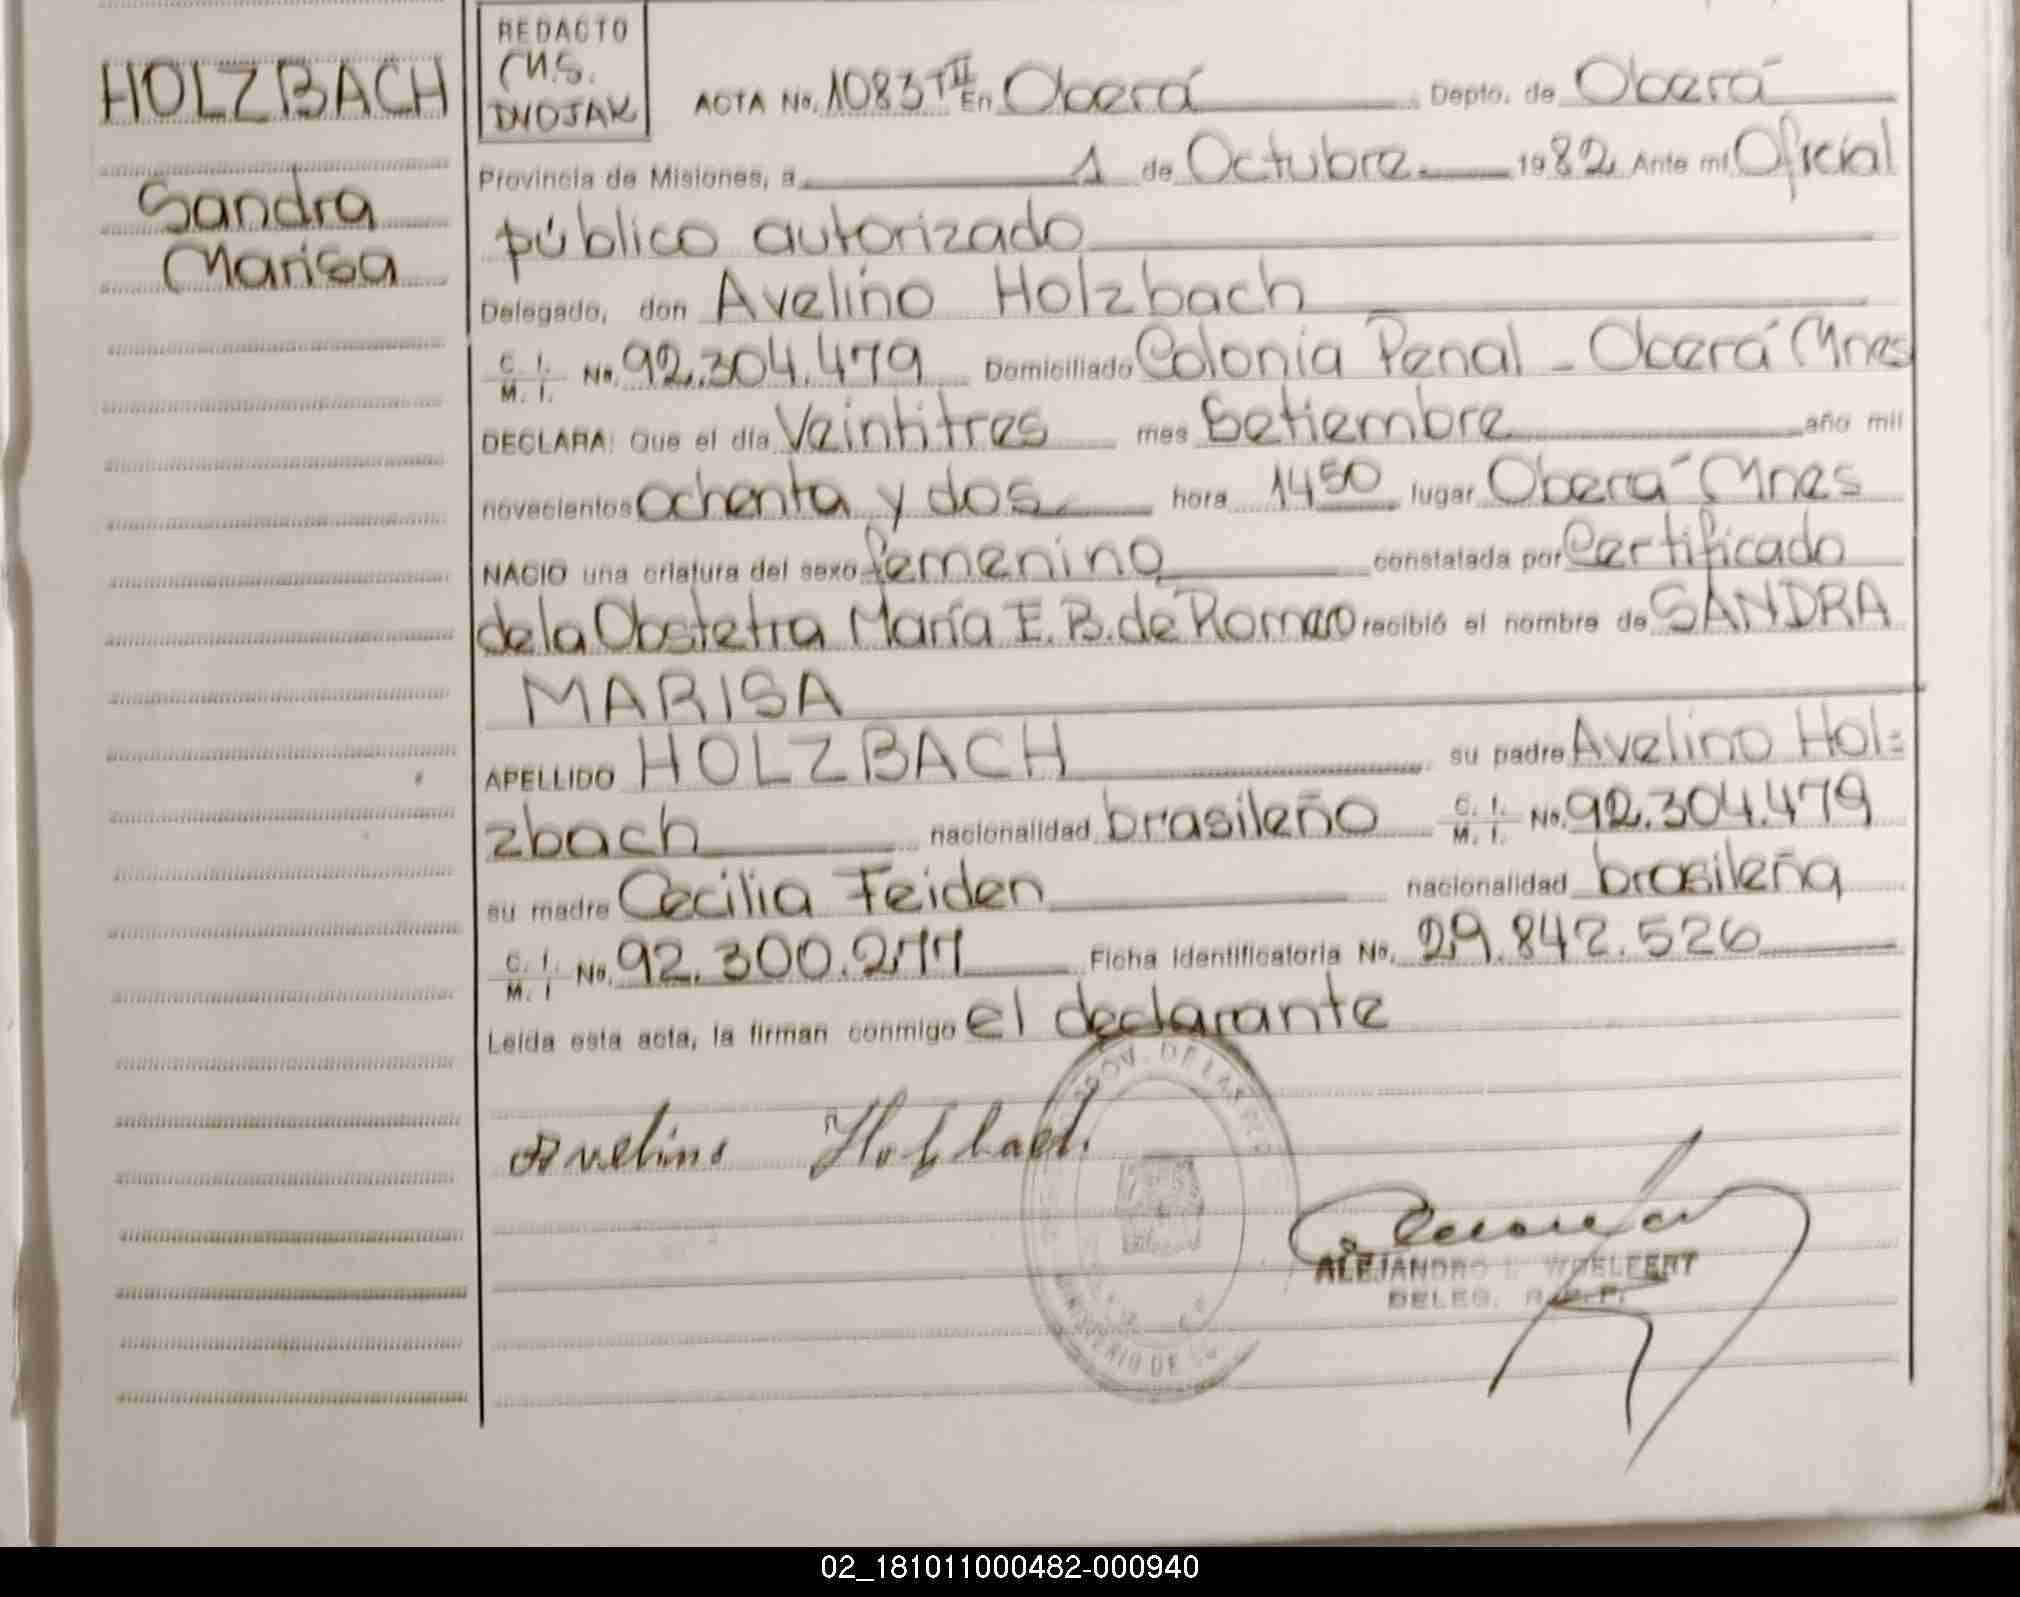 HOLZBACH
Sandra
Marisa
REDACTO
M.S.
DVOJAK
ACTA No. 1083 TII En Oberá Depto. de Oberá
Provincia de Misiones, a 1 de Octubre 1982 Ante mi Oficial
público autorizado
Delegado, don Avelino Holzbach
C. I. M. I. No. 92.304.479 Domiciliado Colonia Penal - Oberá Mnes
DECLARA: Que el día Veintitres mes Setiembre año mil
novecientos ochenta y dos hora 1450 lugar Oberá Mnes
NACIO una criatura del sexo femenino constatada por Certificado
de la Obstetra María E. B. de Romero recibió el nombre de SANDRA
MARISA
APELLIDO HOLZBACH su padre Avelino Hol=
zbach nacionalidad brasileño C. I. M. I. No. 92.304.479
su madre Cecilia Feiden nacionalidad brasileña
C. I. M. I No. 92.300.277 Ficha Identificatoria No. 29.842.526
Leída esta acta, la firman conmigo el declarante
PROV. DE LAS
Avelino Holzbach
ALEJANDRO L. WOELFERT
DELEG. R. P.
MINISTERIO DE
02_181011000482-000940